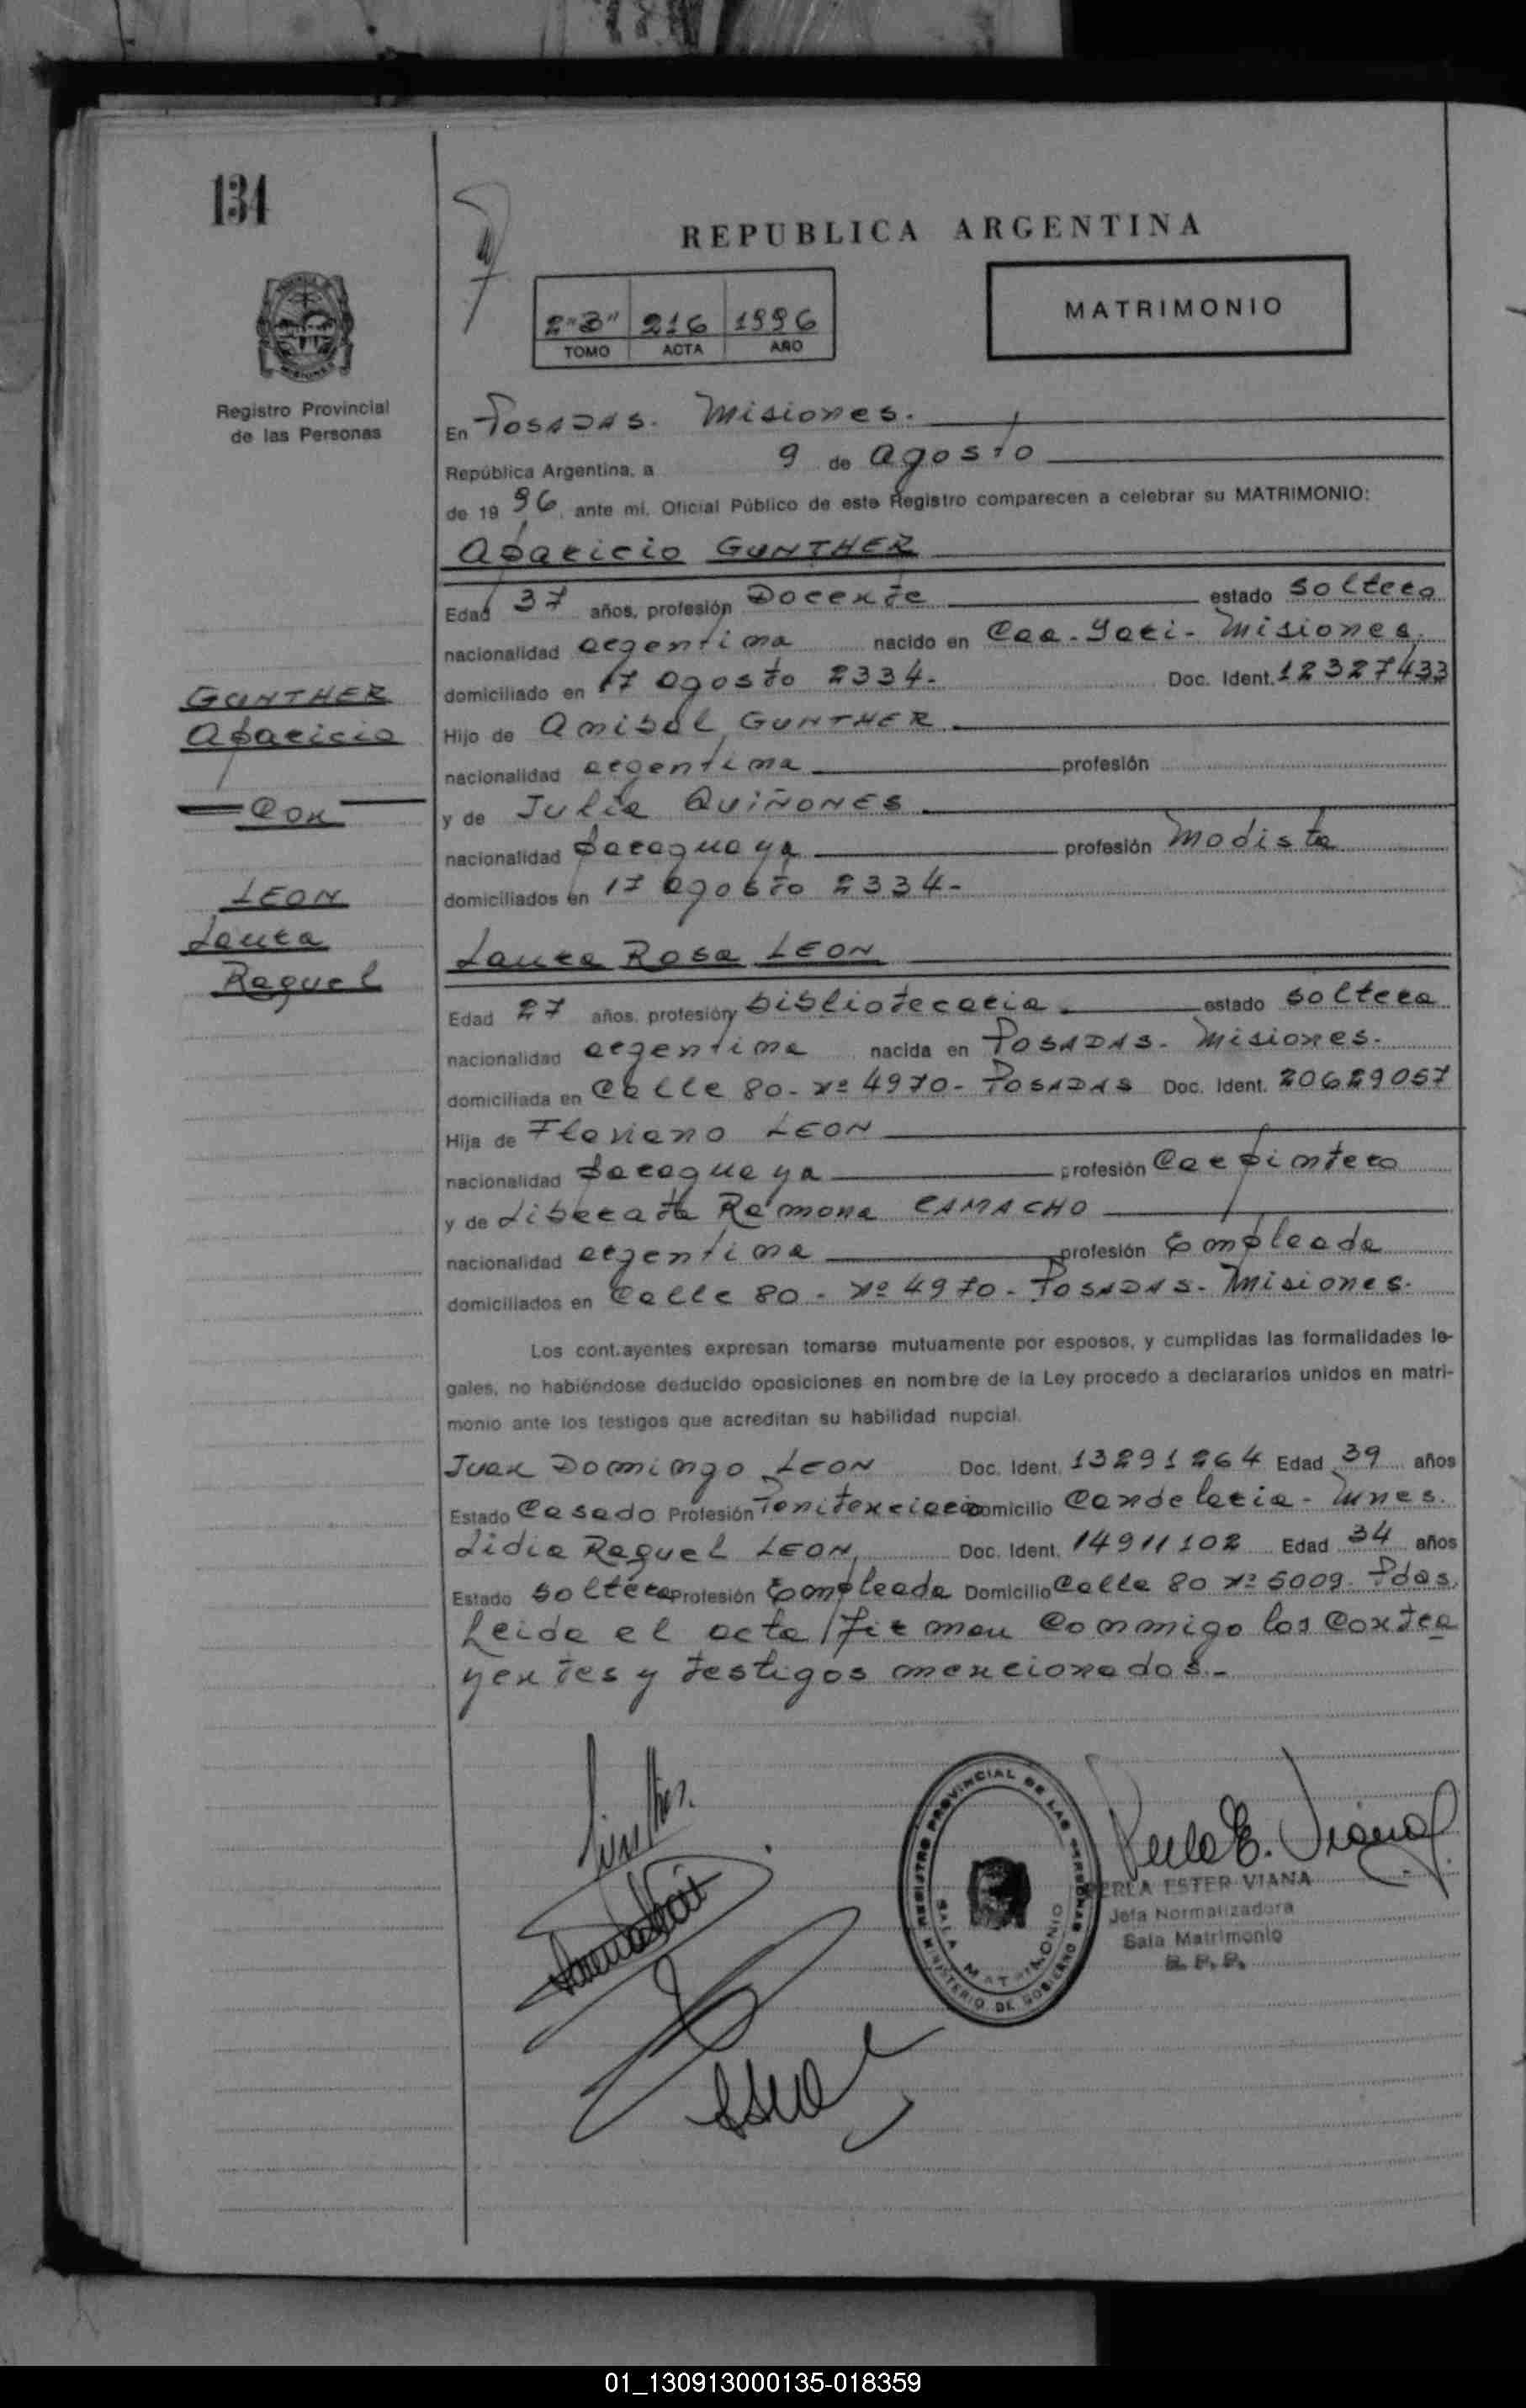 134
REPUBLICA ARGENTINA
2"B" 216 1996
TOMO ACTA AÑO
MATRIMONIO
Registro Provincial
de las Personas
En Posadas. Misiones.
República Argentina, a 9 de agosto
de 1996, ante mi, Oficial Público de este Registro comparecen a celebrar su MATRIMONIO:
Aparicio GUNTHER
Edad 37 años, profesión Docente estado soltero
nacionalidad argentina nacido en Caa-Yari- Misiones.
domiciliado en 17 agosto 2334- Doc. Ident. 12327433
Hijo de Anibal GUNTHER
nacionalidad argentina profesión
y de Julia QUIÑONES
nacionalidad paraguaya profesión Modista
domiciliados en 17 agosto 2334-
GUNTHER
Aparicio
Con
LEON
Laura
Raquel
Laura Rosa LEON
Edad 27 años, profesión bibliotecaria estado soltera
nacionalidad argentina nacida en Posadas- Misiones.
domiciliada en Calle 80- Nº 4970- Posadas Doc. Ident. 20629057
Hija de Flaviano LEON
nacionalidad paraguaya profesión Carpintero
y de Liberata Ramona CAMACHO
nacionalidad argentina profesión Empleada
domiciliados en Calle 80 - Nº 4970- Posadas- Misiones.
Los contrayentes expresan tomarse mutuamente por esposos, y cumplidas las formalidades le-
gales, no habiéndose deducido oposiciones en nombre de la Ley procedo a declararlos unidos en matri-
monio ante los testigos que acreditan su habilidad nupcial.
Juan Domingo LEON Doc. Ident. 13291264 Edad 39 años
Estado Casado Profesión Penitenciario Domicilio Candelaria- Mnes.
Lidia Raquel LEON, Doc. Ident. 14911102 Edad 34 años
Estado soltera Profesión Empleada Domicilio Calle 80 Nº 5009- Pdas.
Leida el acta, firman conmigo los contra
yentes y testigos mencionados.-
REGISTRO PROVINCIAL DE LAS PERSONAS
SALA MATRIMONIO
MINISTERIO DE GOBIERNO
Perla E. Viana
PERLA ESTER VIANA
Jefa Normalizadora
Sala Matrimonio
R. P. P.
01_130913000135-018359